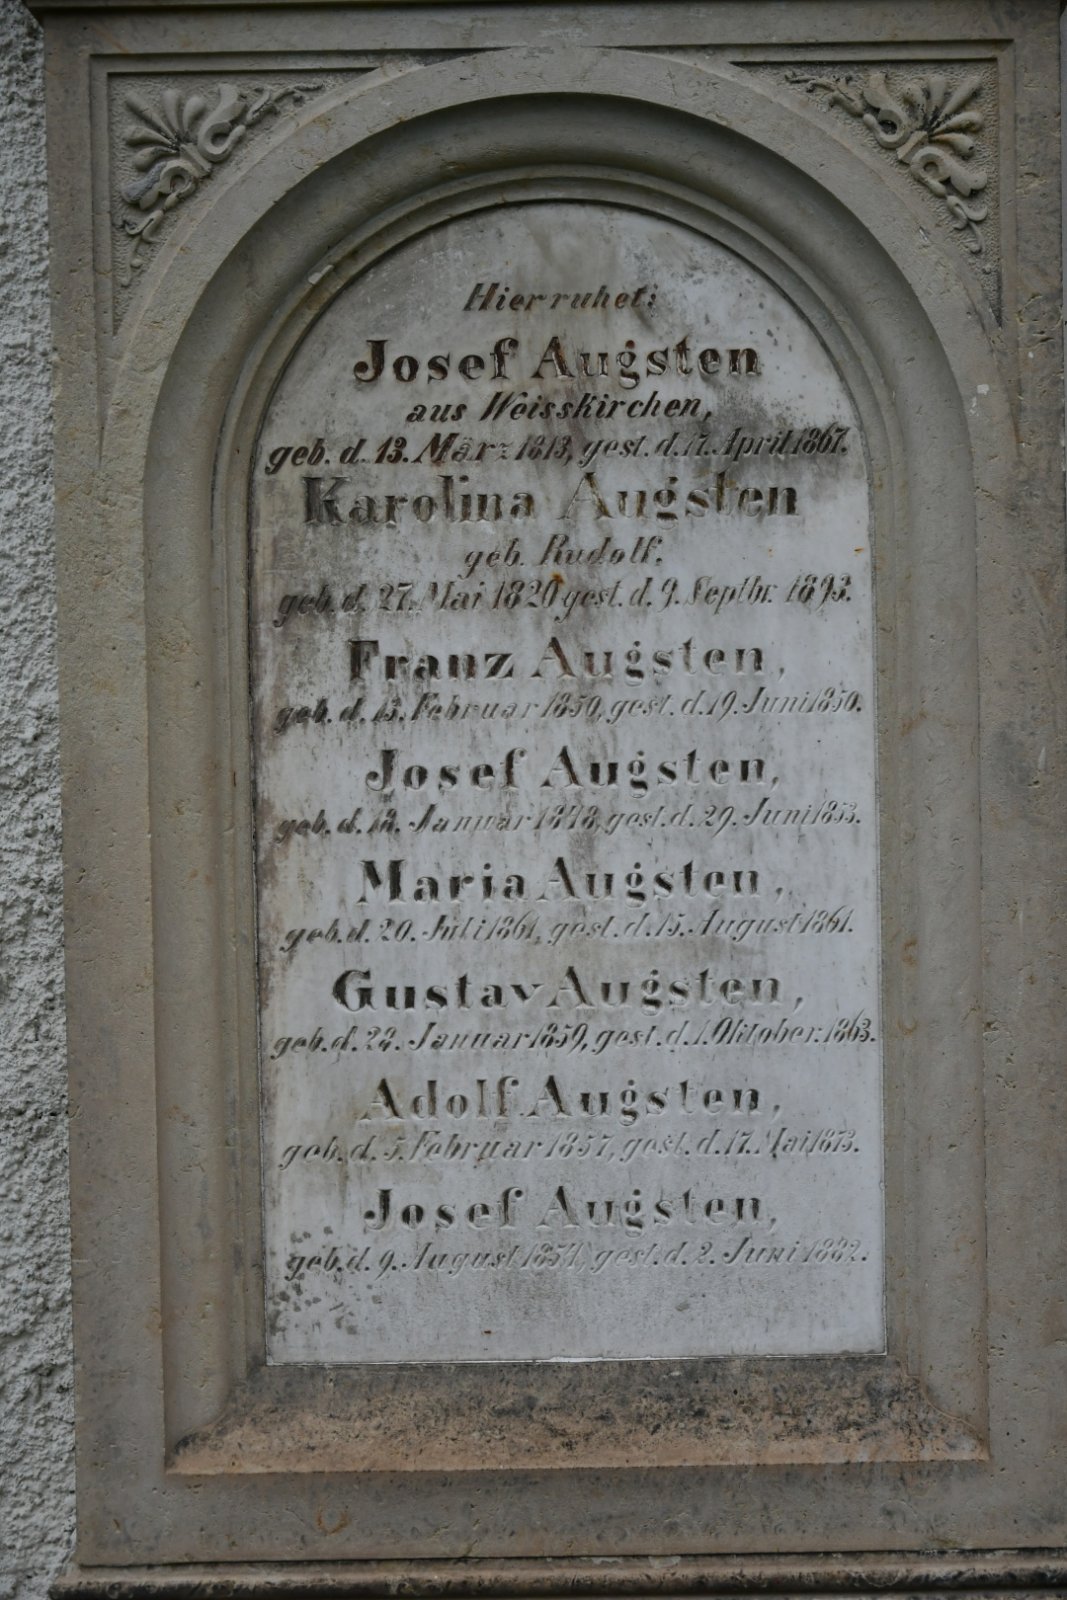 Hier ruhet:
Josef Augsten
aus Weisskirchen,
geb. d. 13. März 1813, gest. d. 17. April 1867.
Karolina Augsten
geb. Rudolf.
geb. d. 27. Mai 1820 gest. d. 9. Septbr. 1893.
Franz Augsten,
geb. d. 13. Februar 1850, gest. d. 19. Juni 1850.
Josef Augsten,
geb. d. 18. Januar 1848, gest. d. 29. Juni 1853.
Maria Augsten,
geb. d. 20. Juli 1861, gest. d. 15. August 1861.
Gustav Augsten,
geb. d. Januar 1859, gest. d. 1. Oktober. 1863.
Adolf Augsten,
geb. d. 5. Februar 1857, gest. d. 17. Mai 1873.
Josef Augsten,
geb. d. 9. August 1854, gest. d. 2. Juni 1882.